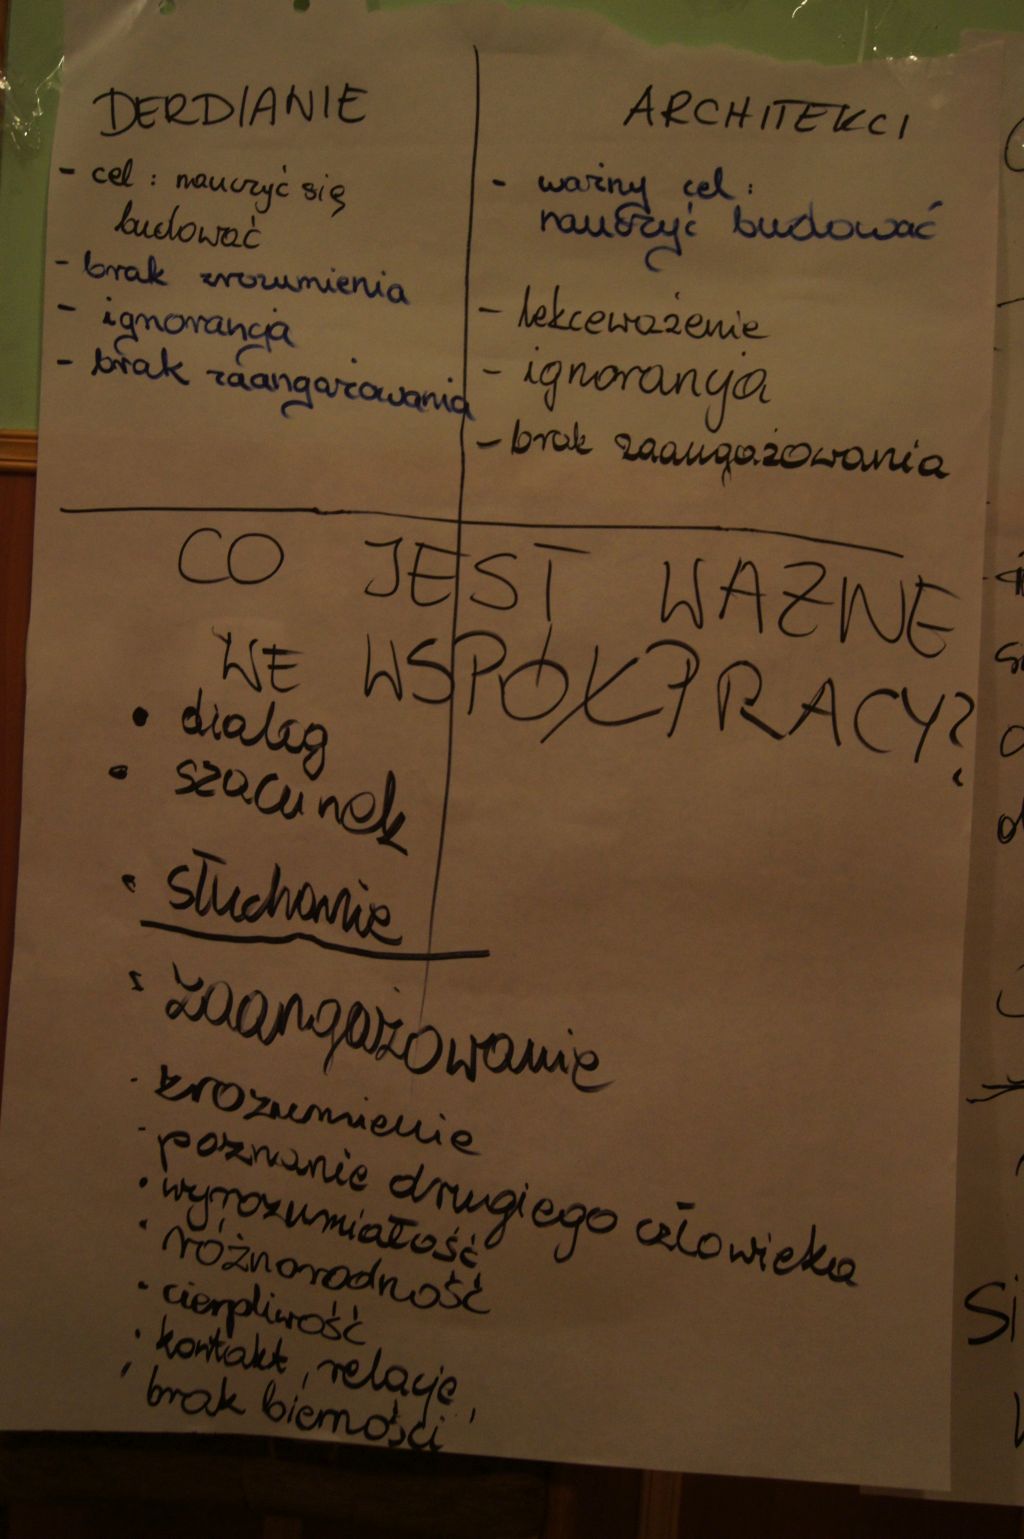 DERDIANIE
- cel: nauczyć się
budować
- brak zrozumienia
- ignorancja
- brak zaangażowania
ARCHITEKCI
- ważny cel:
nauczyć budować
- lekceważenie
- ignorancja
- brak zaangażowania
CO JEST WAŻNE
WE WSPÓŁPRACY?
• dialog
• szacunek
• słuchanie
• zaangażowanie
• zrozumienie
• poznanie drugiego człowieka
• wyrozumiałość
• różnorodność
• cierpliwość
• kontakt, relacje,
• brak bierności